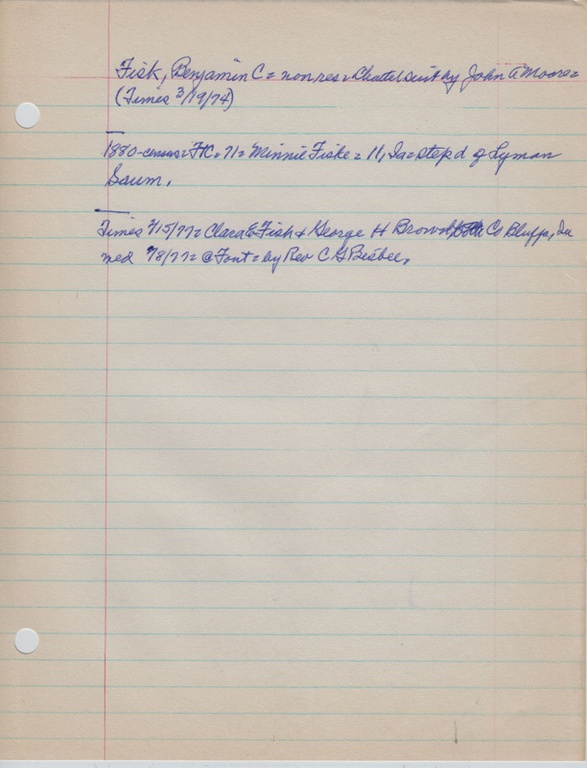 Fisk, Benjamin C = nonres = Chattel suit by John A Moore =
(Times 3/19/74)
1880-census = FtC = 71 = Minnie Fiske = 11, Ia = stepd of Lyman
Saum.
Times 2/15/77 = Clara E Fisk + George H Brown both Co Bluffs, Ia
med 2/8/77 = @ Font = by Rev C G Bisbee,